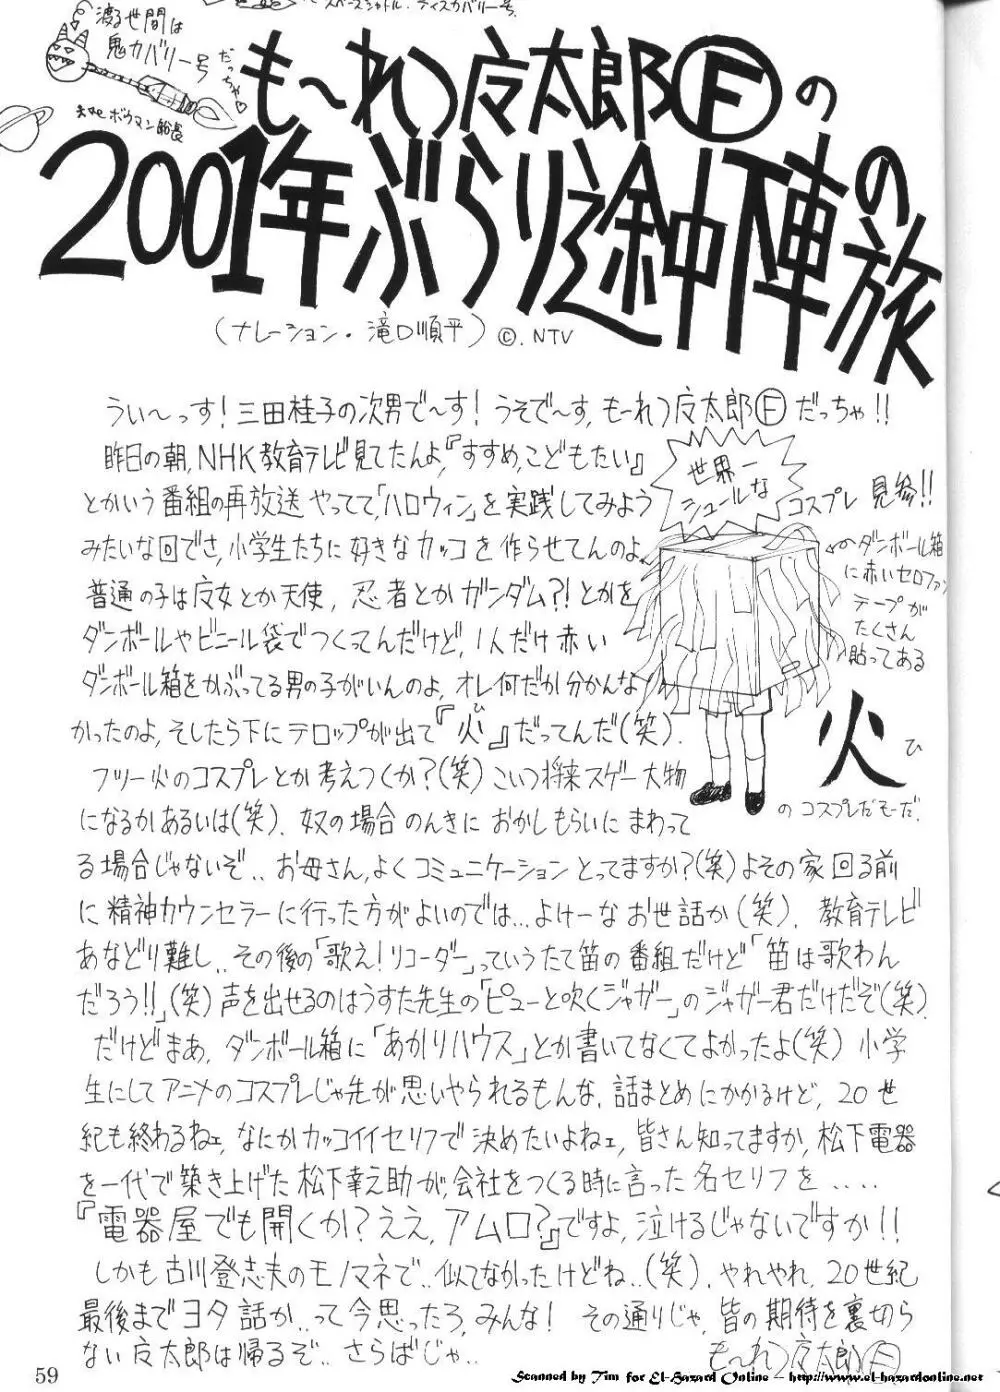 スペースシャトル・ディスカバリー号。
渡る世間は
鬼カバリー号
だっちゃ♡
ボウマン船長
も〜れつ太郎Ⓕの
2001年ぶらり途中下車の旅
(ナレーション・滝口順平)©.NTV
うぃ〜っす!三田佳子の次男で〜す!うそで〜す、も〜れつ太郎Ⓕだっちゃ!!
昨日の朝、NHK教育テレビ見てたんよ、『すすめ、こどもたい』
とかいう番組の再放送やってて、「ハロウィン」を実践してみよう
みたいな回でさ、小学生たちに好きなカッコを作らせてんのよ
普通の子は魔女とか天使、忍者とかガンダム?!とかを
ダンボールやビニール袋でつくってんだけど、1人だけ赤い
ダンボール箱をかぶってる男の子がいんのよ、オレ何だか分かんな
かったのよ、そしたら下にテロップが出て『火』だってんだ(笑).
ひ
フツー火のコスプレとか考えつくか?(笑)こいつ将来スゲー大物
になるかあるいは(笑).奴の場合のんきにおかしもらいにまわって
る場合じゃないぞ..お母さん,よくコミュニケーションとってますか?(笑)よその家回る前
に精神カウンセラーに行った方がよいのでは...よけーなお世話か(笑).教育テレビ
あなどり難し..その後の「歌え!リコーダー」っていうたて笛の番組だけど「笛は歌わん
だろう!!」(笑)声を出せるのはうすた先生の「ピューと吹くジャガー」のジャガー君だけだぞ(笑).
だけどまあ,ダンボール箱に「あかりハウス」とか書いてなくてよかったよ(笑)小学
生にしてアニメのコスプレじゃ先が思いやられるもんな.話まとめにかかるけど,20世
紀も終わるねェ,なにかカッコイイセリフで決めたいよねェ,皆さん知ってますか,松下電器
を一代で築き上げた松下幸之助が,会社をつくる時に言った名セリフを....
『電器屋でも開くか?ええ,アムロ?』ですよ,泣けるじゃないですか!!
しかも古川登志夫のモノマネで..似てなかったけどね..(笑).やれやれ,20世紀
最後までヨタ話か..って今思ったろ,みんな!その通りじゃ,皆の期待を裏切ら
ない太郎は帰るぞ..さらばじゃ..
も〜れつ太郎Ⓕ
世界一
シュールな
コスプレ見参!!
ダンボール箱
に赤いセロファン
テープが
たくさん
貼ってある
火
ひ
のコスプレだそーだ.
59
Scanned by Tim for El-Hazard Online – http://www.el-hazardonline.net